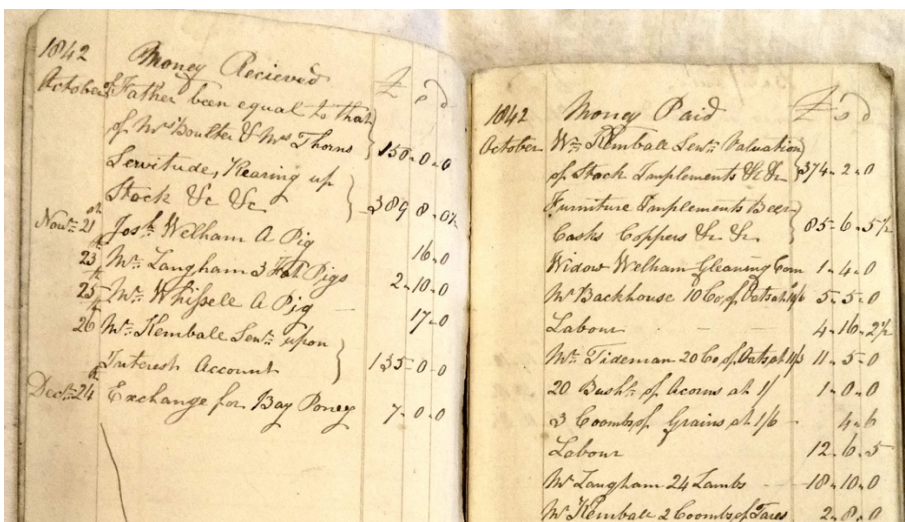 1842 Money Recieved £ s d
October of Father been equal to that
of Mrs Boulter & Mrs Thorns 150 - 0 - 0
Servitude, Rearing up
Stock &c &c 389 8 - 0½
Novr 21st Josh Welham A Pig 16 - 0
23 Mr Langham 3 Fat Pigs 2 - 10 - 0
25th Mr Whissell A Pig 17 - 0
26th Mr Kemball Senr upon
Interest Account 135 - 0 - 0
Decr 24th Exchange for Bay Poney 7 - 0 - 0
1842 Money Paid £ s d
October Wm Kemball Senr Valuation
of Stock Implements &c &c 374 - 2 - 0
Furniture Implements Beer
Casks Coppers &c &c 85 - 6 - 5½
Widow Welham Gleaning Corn 1 - 4 - 0
Mr Backhouse 10 Co of Oats at 10/6 5 - 5 - 0
Labour 4 - 16 - 2½
Mr Tideman 20 Co of Oats at 11/3 11 - 5 - 0
20 Bushls of Acorns at 1/ 1 - 0 - 0
3 Coombs of Grains at 1/6 4 - 6
Labour 12 - 6 - 5
Mr Langham 24 Lambs 18 - 10 - 0
Mr Kemball 2 Coombs of Tares 2 - 8 - 0